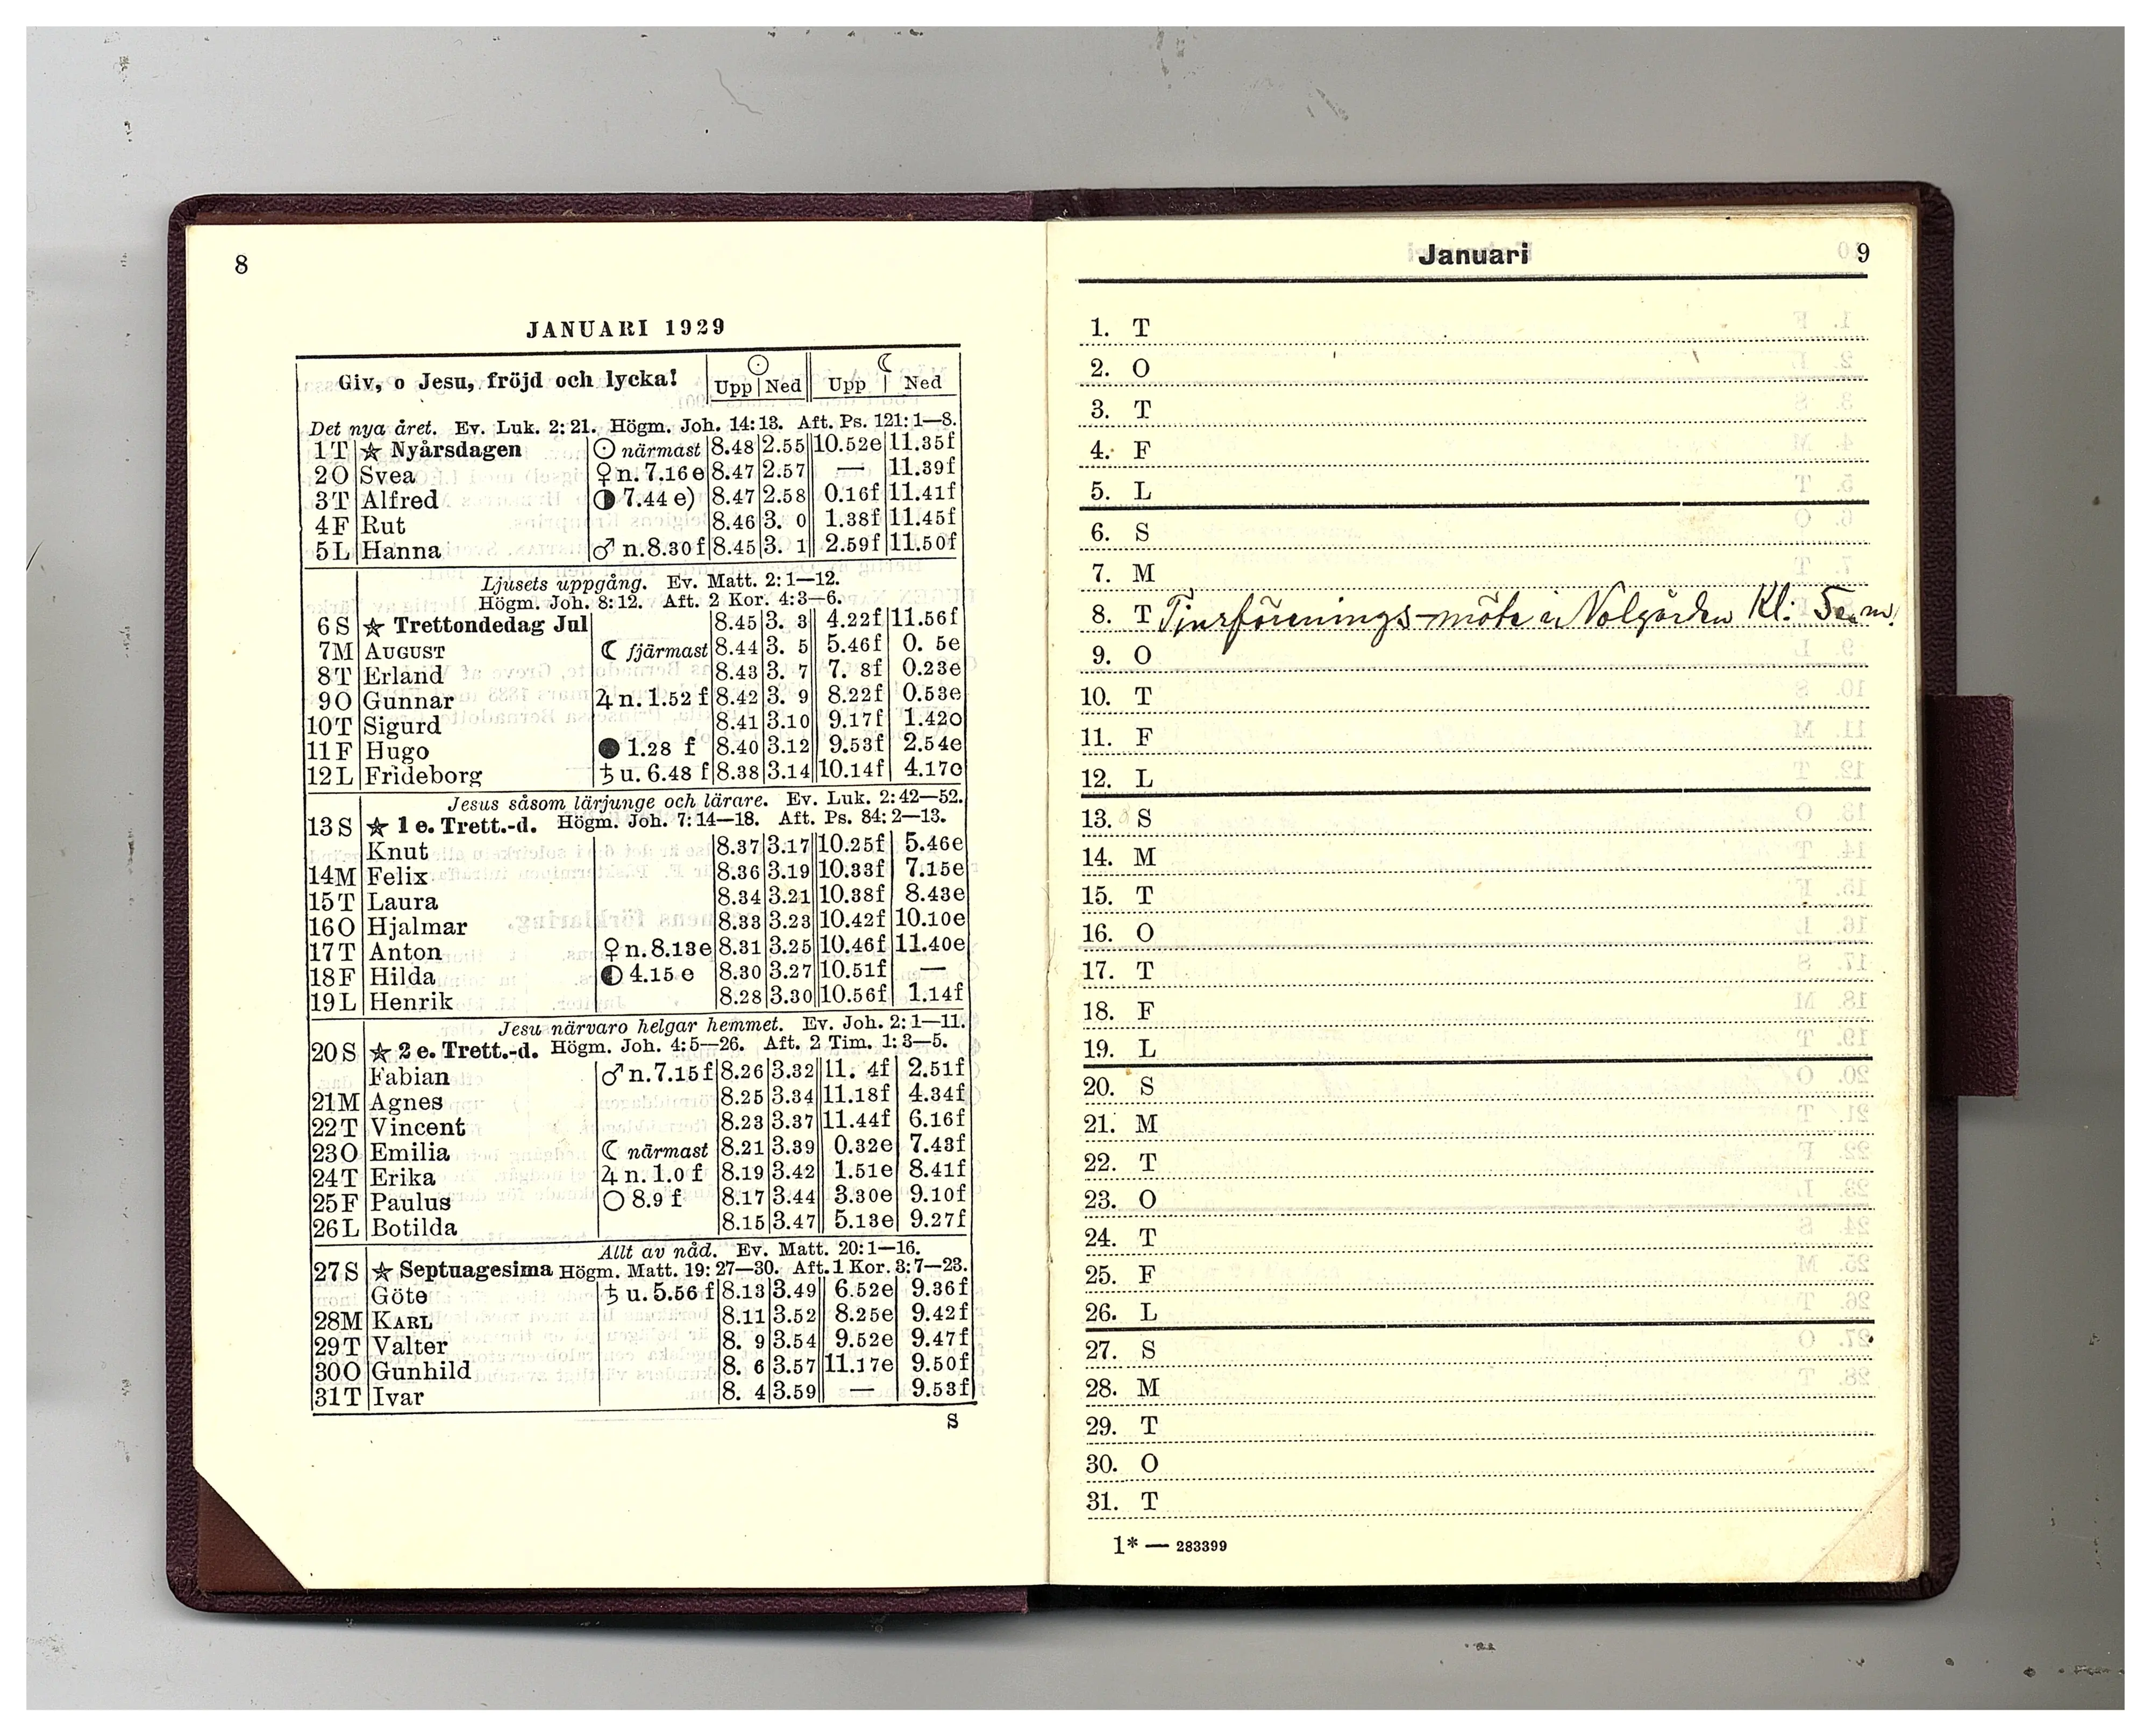 8
JANUARI 1929
Giv, o Jesu, fröjd och lycka! ☉ Upp Ned ☾ Upp Ned
Det nya året. Ev. Luk. 2:21. Högm. Joh. 14:13. Aft. Ps. 121:1—8.
1 T ★ Nyårsdagen ☉ närmast 8.48 2.55 10.52e 11.35f
2 O Svea ♀ n. 7.16 e 8.47 2.57 — 11.39f
3 T Alfred ◑ 7.44 e) 8.47 2.58 0.16f 11.41f
4 F Rut 8.46 3. 0 1.38f 11.45f
5 L Hanna ♂ n. 8.30 f 8.45 3. 1 2.59f 11.50f
Ljusets uppgång. Ev. Matt. 2:1—12.
Högm. Joh. 8:12. Aft. 2 Kor. 4:3—6.
6 S ★ Trettondedag Jul 8.45 3. 3 4.22f 11.56f
7 M AUGUST ☾ fjärmast 8.44 3. 5 5.46f 0. 5e
8 T Erland 8.43 3. 7 7. 8f 0.23e
9 O Gunnar ♃ n. 1.52 f 8.42 3. 9 8.22f 0.53e
10 T Sigurd 8.41 3.10 9.17f 1.42e
11 F Hugo ● 1.28 f 8.40 3.12 9.53f 2.54e
12 L Frideborg ♄ u. 6.48 f 8.38 3.14 10.14f 4.17e
Jesus såsom lärjunge och lärare. Ev. Luk. 2:42—52.
13 S ★ 1 e. Trett.-d. Högm. Joh. 7:14—18. Aft. Ps. 84:2—13.
Knut 8.37 3.17 10.25f 5.46e
14 M Felix 8.36 3.19 10.33f 7.15e
15 T Laura 8.34 3.21 10.38f 8.43e
16 O Hjalmar 8.33 3.23 10.42f 10.10e
17 T Anton ♀ n. 8.13e 8.31 3.25 10.46f 11.40e
18 F Hilda ◐ 4.15 e 8.30 3.27 10.51f —
19 L Henrik 8.28 3.30 10.56f 1.14f
Jesu närvaro helgar hemmet. Ev. Joh. 2:1—11.
20 S ★ 2 e. Trett.-d. Högm. Joh. 4:5—26. Aft. 2 Tim. 1:3—5.
Fabian ♂ n. 7.15 f 8.26 3.32 11. 4f 2.51f
21 M Agnes 8.25 3.34 11.18f 4.34f
22 T Vincent 8.23 3.37 11.44f 6.16f
23 O Emilia ☾ närmast 8.21 3.39 0.32e 7.43f
24 T Erika ♃ n. 1.0 f 8.19 3.42 1.51e 8.41f
25 F Paulus ○ 8.9 f 8.17 3.44 3.30e 9.10f
26 L Botilda 8.15 3.47 5.13e 9.27f
Allt av nåd. Ev. Matt. 20:1—16.
27 S ★ Septuagesima Högm. Matt. 19:27—30. Aft. 1 Kor. 3:7—23.
Göte ♄ u. 5.56 f 8.13 3.49 6.52e 9.36f
28 M KARL 8.11 3.52 8.25e 9.42f
29 T Valter 8. 9 3.54 9.52e 9.47f
30 O Gunhild 8. 6 3.57 11.17e 9.50f
31 T Ivar 8. 4 3.59 — 9.53f
S
Januari 9
1. T
2. O
3. T
4. F
5. L
6. S
7. M
8. T Tjurförenings-möte i Nolgården Kl: 5 e.m.
9. O
10. T
11. F
12. L
13. S
14. M
15. T
16. O
17. T
18. F
19. L
20. S
21. M
22. T
23. O
24. T
25. F
26. L
27. S
28. M
29. T
30. O
31. T
1* — 283399